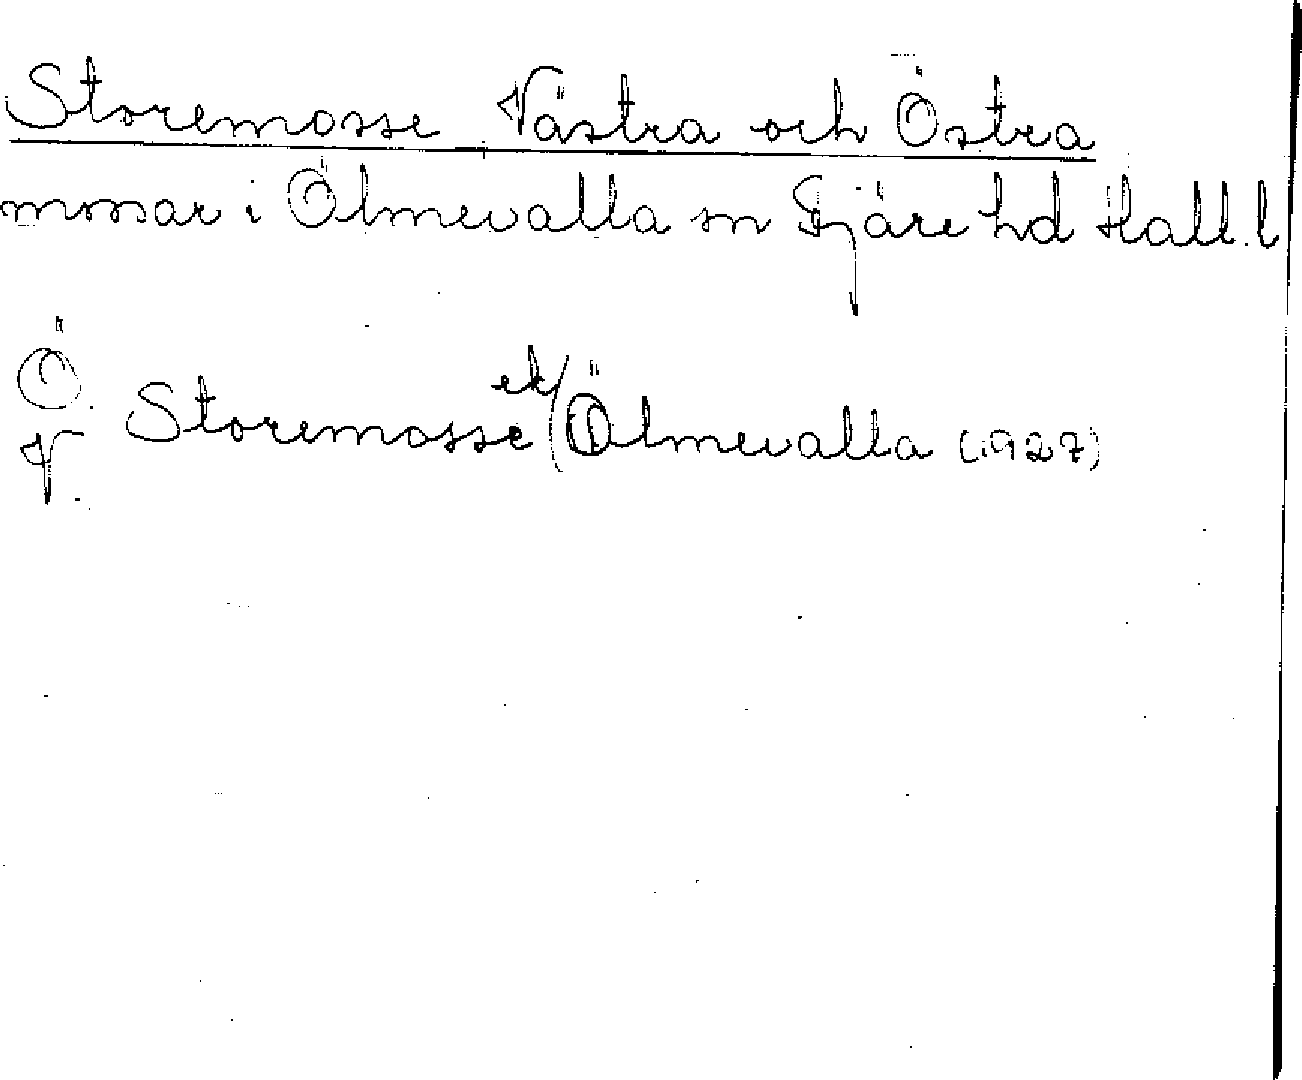 Storemosse, Västra och Östra
mossar i Ölmevalla sn Fjäre hd Hall. l
Ö.
V. Storemosse ek/(Ölmevalla (1927)